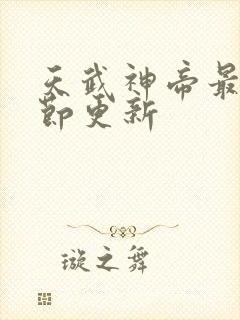 天武神帝最
节更新
璇之舞